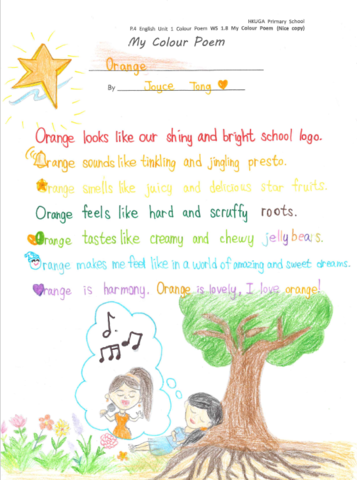 HKUGA Primary School
P.4 English Unit 1 Colour Poem WS 1.8 My Colour Poem (Nice copy)
My Colour Poem
Orange
By Joyce Tong
Orange looks like our shiny and bright school logo.
Orange sounds like tinkling and jingling presto.
Orange smells like juicy and delicious star fruits.
Orange feels like hard and scruffy roots.
Orange tastes like creamy and chewy jellybears.
Orange makes me feel like in a world of amazing and sweet dreams.
Orange is harmony. Orange is lovely, I love orange!